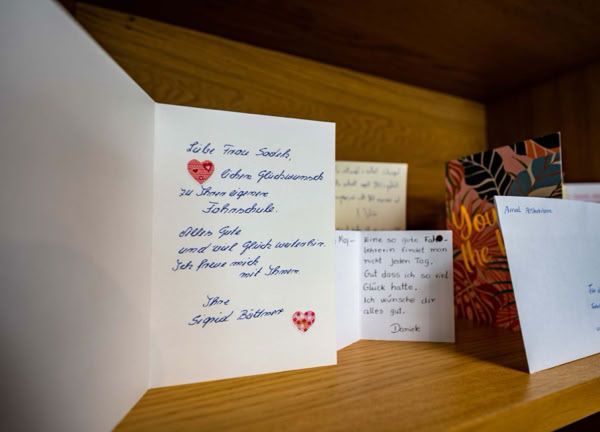 Liebe Frau Sadek,
lichen Glückwunsch
zu Ihrer eigenen
Fahrschule.
Alles Gute
und viel Glück weiterhin.
Ich freue mich
mit Ihnen
Ihre
Sigrid Böttner
Eine so gute Fahr-
lehrerin findet man
nicht jeden Tag.
Gut dass ich so viel
Glück hatte.
Ich wünsche dir
alles gut.
Daniele
You
the
Amal